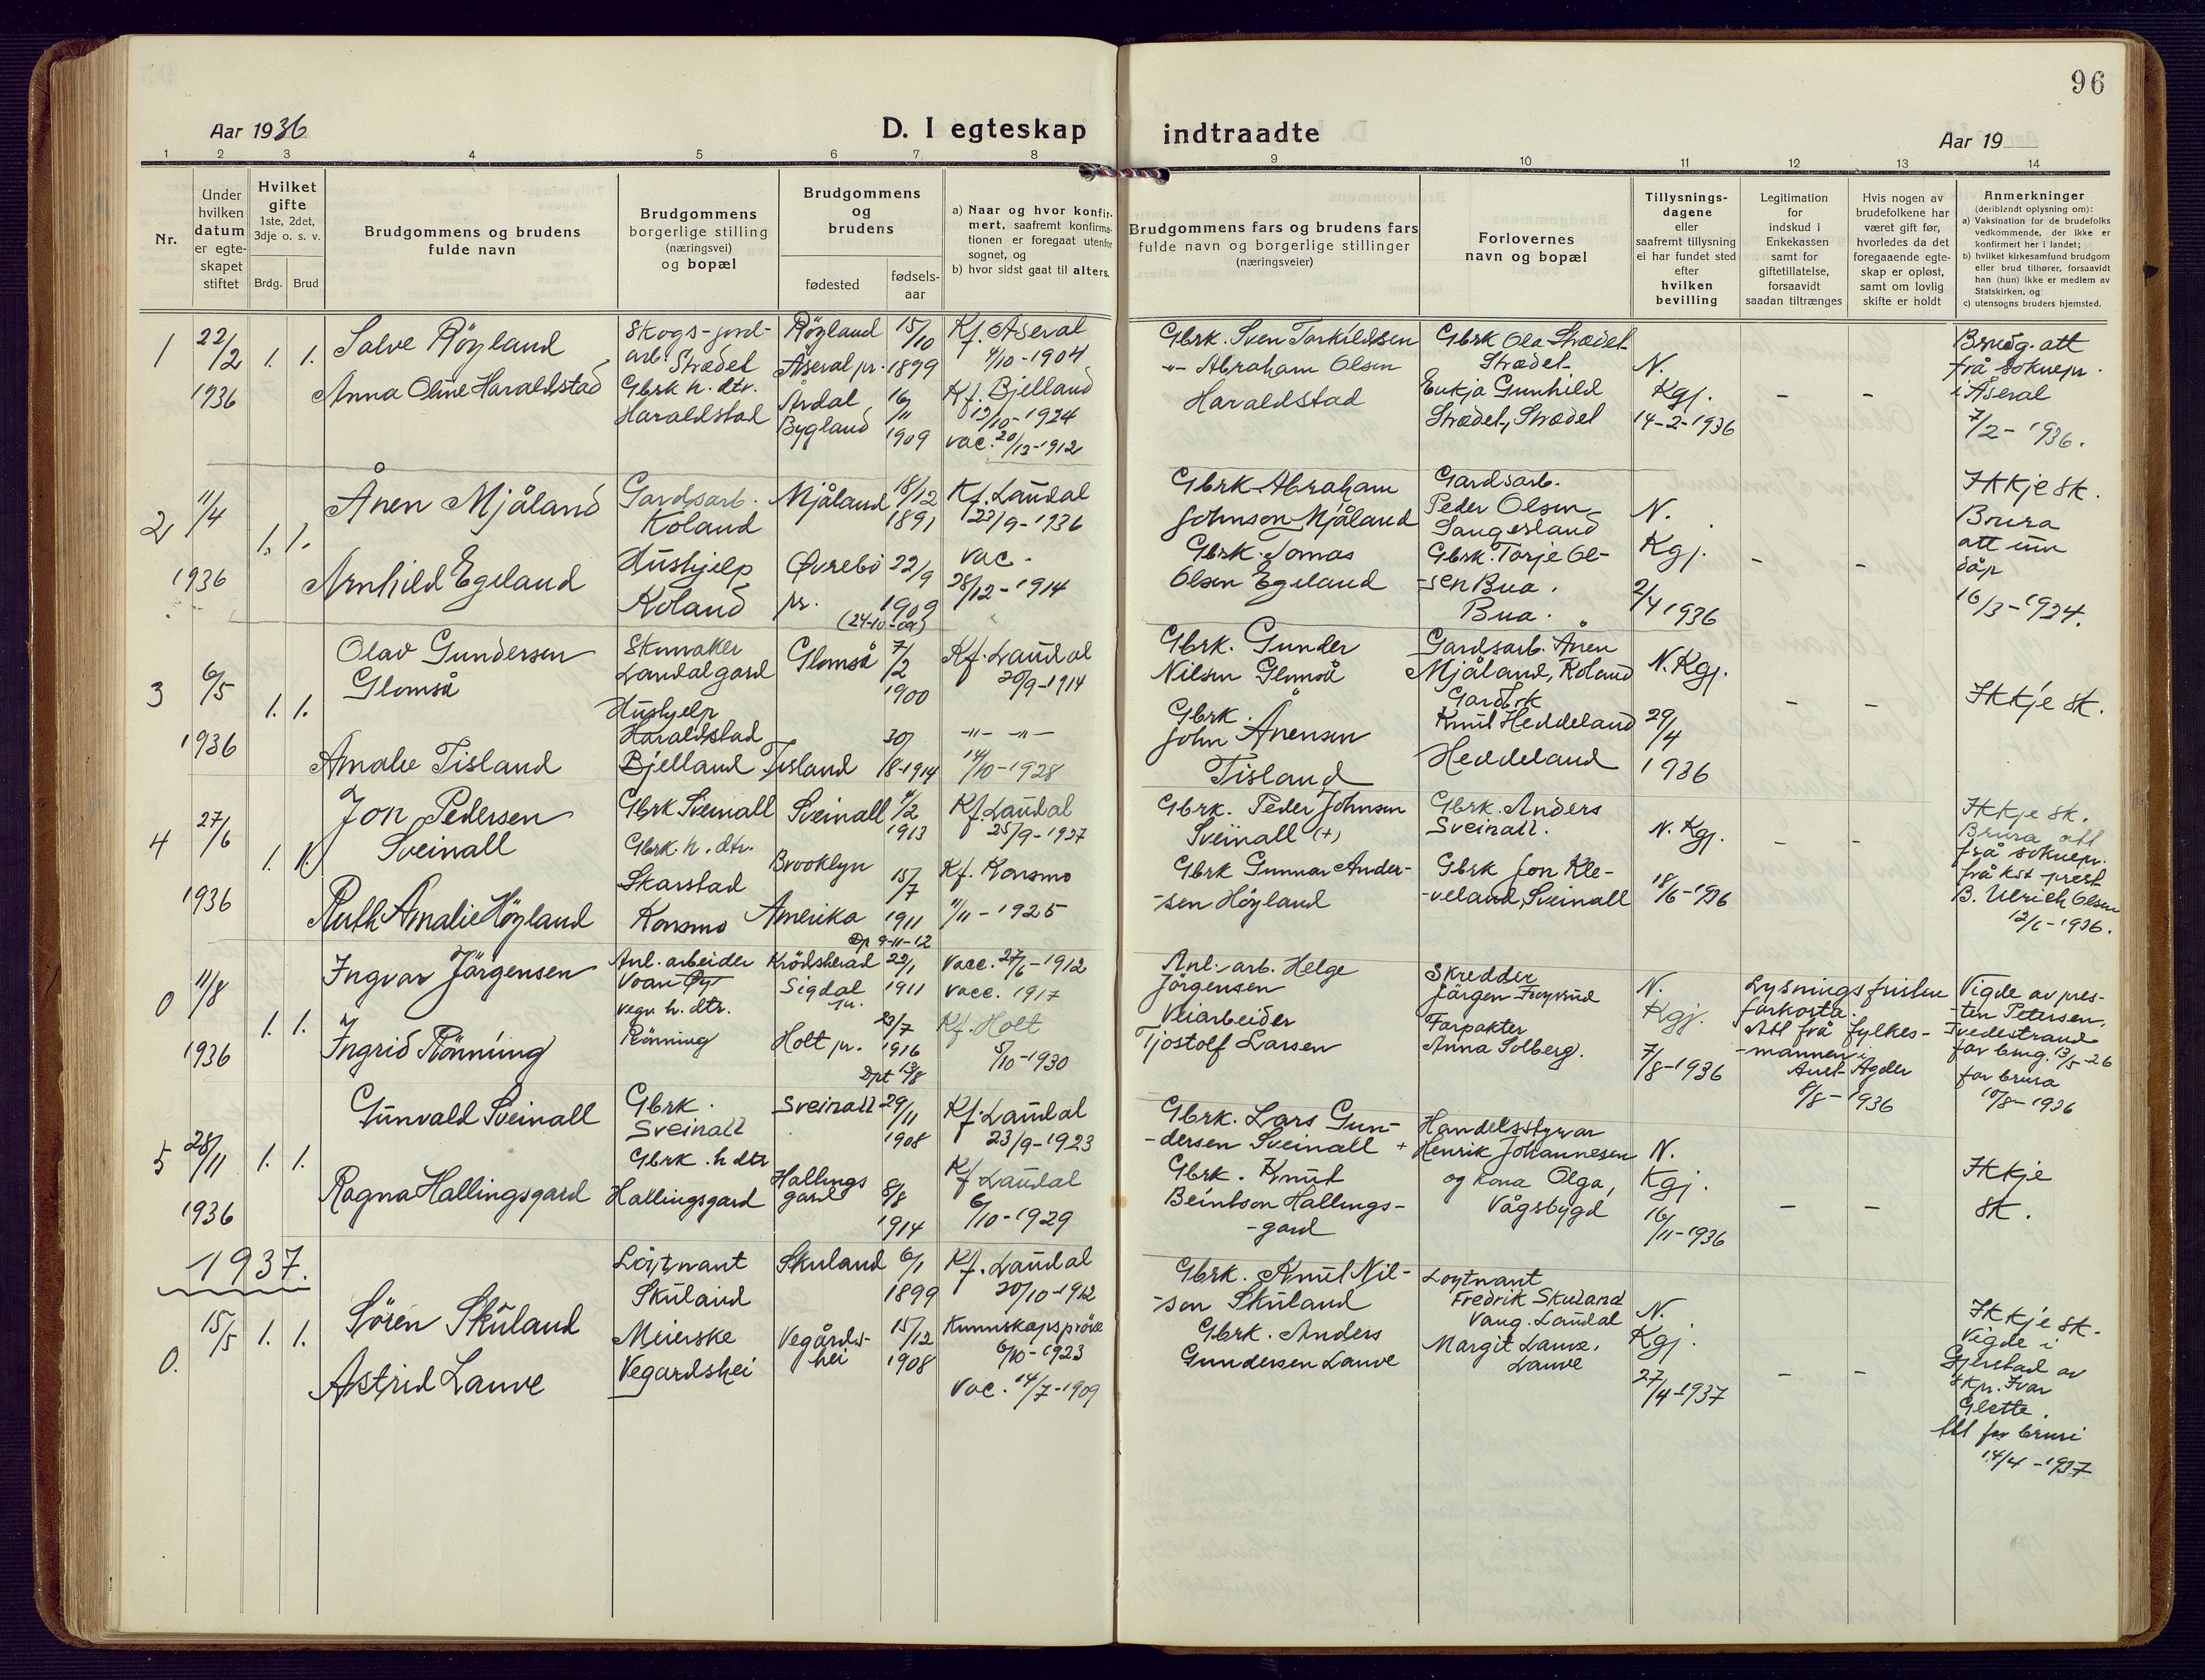 96
Aar 1936
D. I egteskap
indtraadte
Aar 19
1 2 3 4 5 6 7 8 9 10 11 12 13 14
Nr.
Under
hvilken
datum
er egte-
skapet
stiftet
Hvilket
gifte
1ste, 2det,
3dje o. s. v.
Brdg. Brud
Brudgommens og brudens
fulde navn
Brudgommens
borgerlige stilling
(næringsvei)
og bopæl
Brudgommens
og
brudens
fødested
fødsels-
aar
a) Naar og hvor konfir-
mert, saafremt konfirma-
tionen er foregaat utenfor
sognet, og
b) hvor sidst gaat til alters.
Brudgommens fars og brudens fars
fulde navn og borgerlige stillinger
(næringsveier)
Forlovernes
navn og bopæl
Tillysnings-
dagene
eller
saafremt tillysning
ei har fundet sted
efter
hvilken
bevilling
Legitimation
for
indskud i
Enkekassen
samt for
giftetillatelse,
forsaavidt
saadan tiltrænges
Hvis nogen av
brudefolkene har
været gift før,
hvorledes da det
foregaaende egte-
skap er opløst,
samt om lovlig
skifte er holdt
Anmerkninger
(deriblandt oplysning om):
a) Vaksination for de brudefolks
vedkommende, der ikke er
konfirmert her i landet;
b) hvilket kirkesamfund brudgom
eller brud tilhører, forsaavidt
han (hun) ikke er medlem av
Statskirken, og
c) utensogns bruders hjemsted.
1
22/2
1936
1. 1.
Salve Röyland
Anna Oline Haraldstad
Skogs-jord-
arb. Strædet
Gbrk h. dtr.
Haraldstad
Röyland
Åseral pr.
Årdal
Bygland
15/10
1899
16/11
1909
Kf. Åseral
4/10-1904
Kf. Bjelland
12/10-1924
vac. 20/12-1912
Gbrk. Sven Torkildsen
-"- Abraham Olsen
Haraldstad
Gbrk Ola Strædet
Strædet
Enkja Gunhild
Strædet, Strædet
N.
Kgj.
14-2-1936
- -
Brudg. att
frå soknepr.
i Åseral
7/2-1936.
2
11/4
1936
1. 1.
Ånen Mjåland
Arnhild Egeland
Gardsarb.
Koland
Hushjelp
Koland
Mjåland
Øvrebö
pr.
18/12
1891
22/9
1909
(24-10-09)
Kf. Laudal
23/9-1936
vac.
28/12-1914
Gbrk Abraham
Johnson Mjåland
Gbrk. Tomas
Olsen Egeland
Gardsarb.
Peder Olsen
Laugesland
Gbrk. Torje Ol-
sen Bua.
Bua.
N.
Kgj.
2/4 1936
- -
Ikkje sk.
Brura
att um
dåp
16/3-1924.
3
6/5
1936
1. 1.
Olav Gundersen
Glomså
Amalie Tisland
Skumaker
Laudalgard
Hushjelp
Haraldstad
Bjelland
Glomså
Tisland
7/2
1900
30/8-1914
Kf. Laudal
20/9-1914
-"- -"-
14/10-1928
Gbrk. Gunder
Nilsen Glomså
Gbrk.
John Ånensen
Tisland
Gardsarb. Ånen
Mjåland, Koland
Gardbrk
Knut Heddeland
Heddeland
N. Kgj.
29/4
1936
- -
Ikkje sk.
4
27/6
1936
1. 1.
Jon Pedersen
Sveinall
Ruth Amalie Höyland
Gbrk Sveinall
Gbrk. h. dtr.
Skarstad
Konsmo
Sveinall
Brooklyn
Amerika
4/2
1913
15/7
1911
Dp 9-11-12
Kf. Laudal
25/9-1927
Kf. Konsmo
11/11-1925
Gbrk. Peder Johnsen
Sveinall (+)
Gbrk Gunnar Ander-
-sen Höyland
Gbrk. Anders
Sveinall.
Gbrk Jon Kle-
-veland, Sveinall
N. Kgj.
18/6-1936
- -
Ikkje sk.
Brura att
frå soknepr.
frå kst prest
B. Ulrich Olsen
12/6-1936.
0
11/8
1936
1. 1.
Ingvar Jörgensen
Ingrid Rönning
Anl. arbeider
Voan Øy
vegv. h. dtr.
Rönning
Krödsherad
Sigdal
pr.
Holt pr.
22/1
1911
23/7
1916
Dpt 13/8
Vacc. 27/6-1912
vacc. 1917
Kf. Holt
5/10-1930
Anl.-arb. Helge
Jörgensen
Veiarbeider
Tjostolf Larsen
Skredder
Jörgen
Forpakter
Anna Solberg.
N.
Kgj.
7/8-1936
Lysningsfristen
forkorta.
Att frå fylkes-
-mannen i
Aust-Agder
8/8-1936
Vigde av pres-
-ten Petersen,
Tvedestrand
for brug. 13/5-26
for brura
10/8-1936
5
28/11
1936
1. 1.
Gunvald Sveinall
Ragna Hallingsgard
Gbrk.
Sveinall
Gbrk. h dtr
Hallingsgard
Sveinall
Hallings
gard
29/11
1908
8/8
1914
Kf. Laudal
23/9-1923
Kf Laudal
6/10-1929
Gbrk. Lars Gun-
-dersen Sveinall +
Gbrk. Knut
Beintson Hallings-
-gard
Handelsstyrar
Henrik Johannesen
og kona Olga,
Vågsbygd
N.
Kgj.
16/11-1936
- -
Ikkje
sk.
1937.
0.
15/5
1. 1.
Sören Skuland
Astrid Lauve
Löytnant
Skuland
Meierske
Vegardshei
Skuland
Vegårds-
hei
6/1
1899
15/12
1908
Kf. Laudal
20/10-1912
Kunnskapspröve
6/10-1923
Vac. 14/7-1909
Gbrk. Knut Nil-
-sen Skuland
Gbrk. Anders
Gundersen Lauve
Loytnant
Fredrik Skuland
Laudal
Margit Lauve,
Lauve
N.
Kgj.
27/4-1937
- -
Ikkje sk.
Vigde i
Gjerstad av
skpr. Ivar
Glette.
Att for bruri
14/4-1937